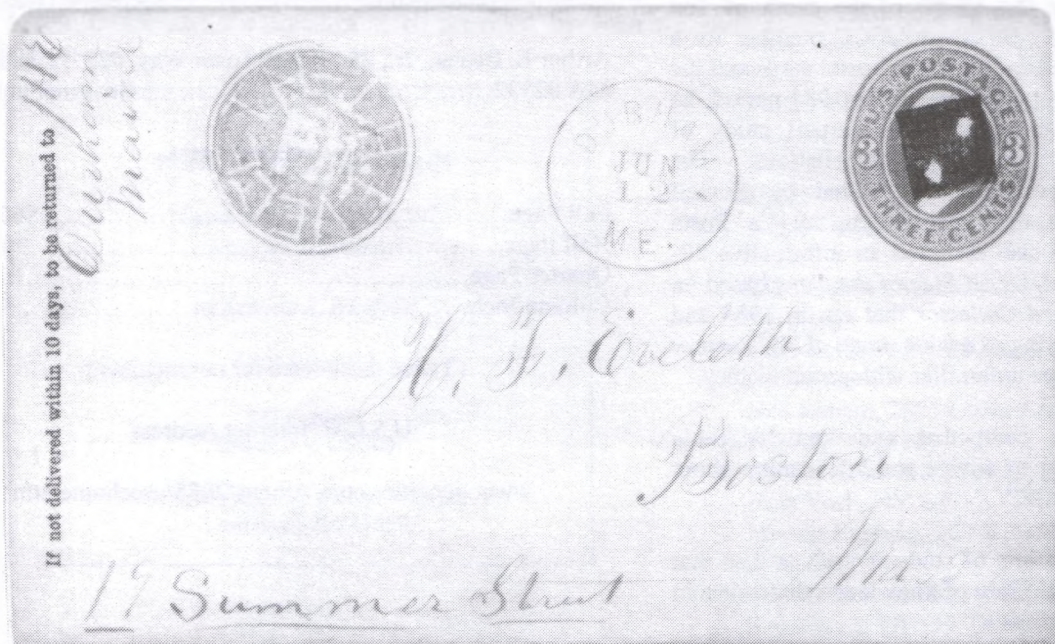 If not delivered within 10 days, to be returned to
Durham
Maine
JUN
12
ME.
U.S. POSTAGE
3 3
THREE CENTS
H. F. Eveleth
Boston
Ma.
19 Summer Street